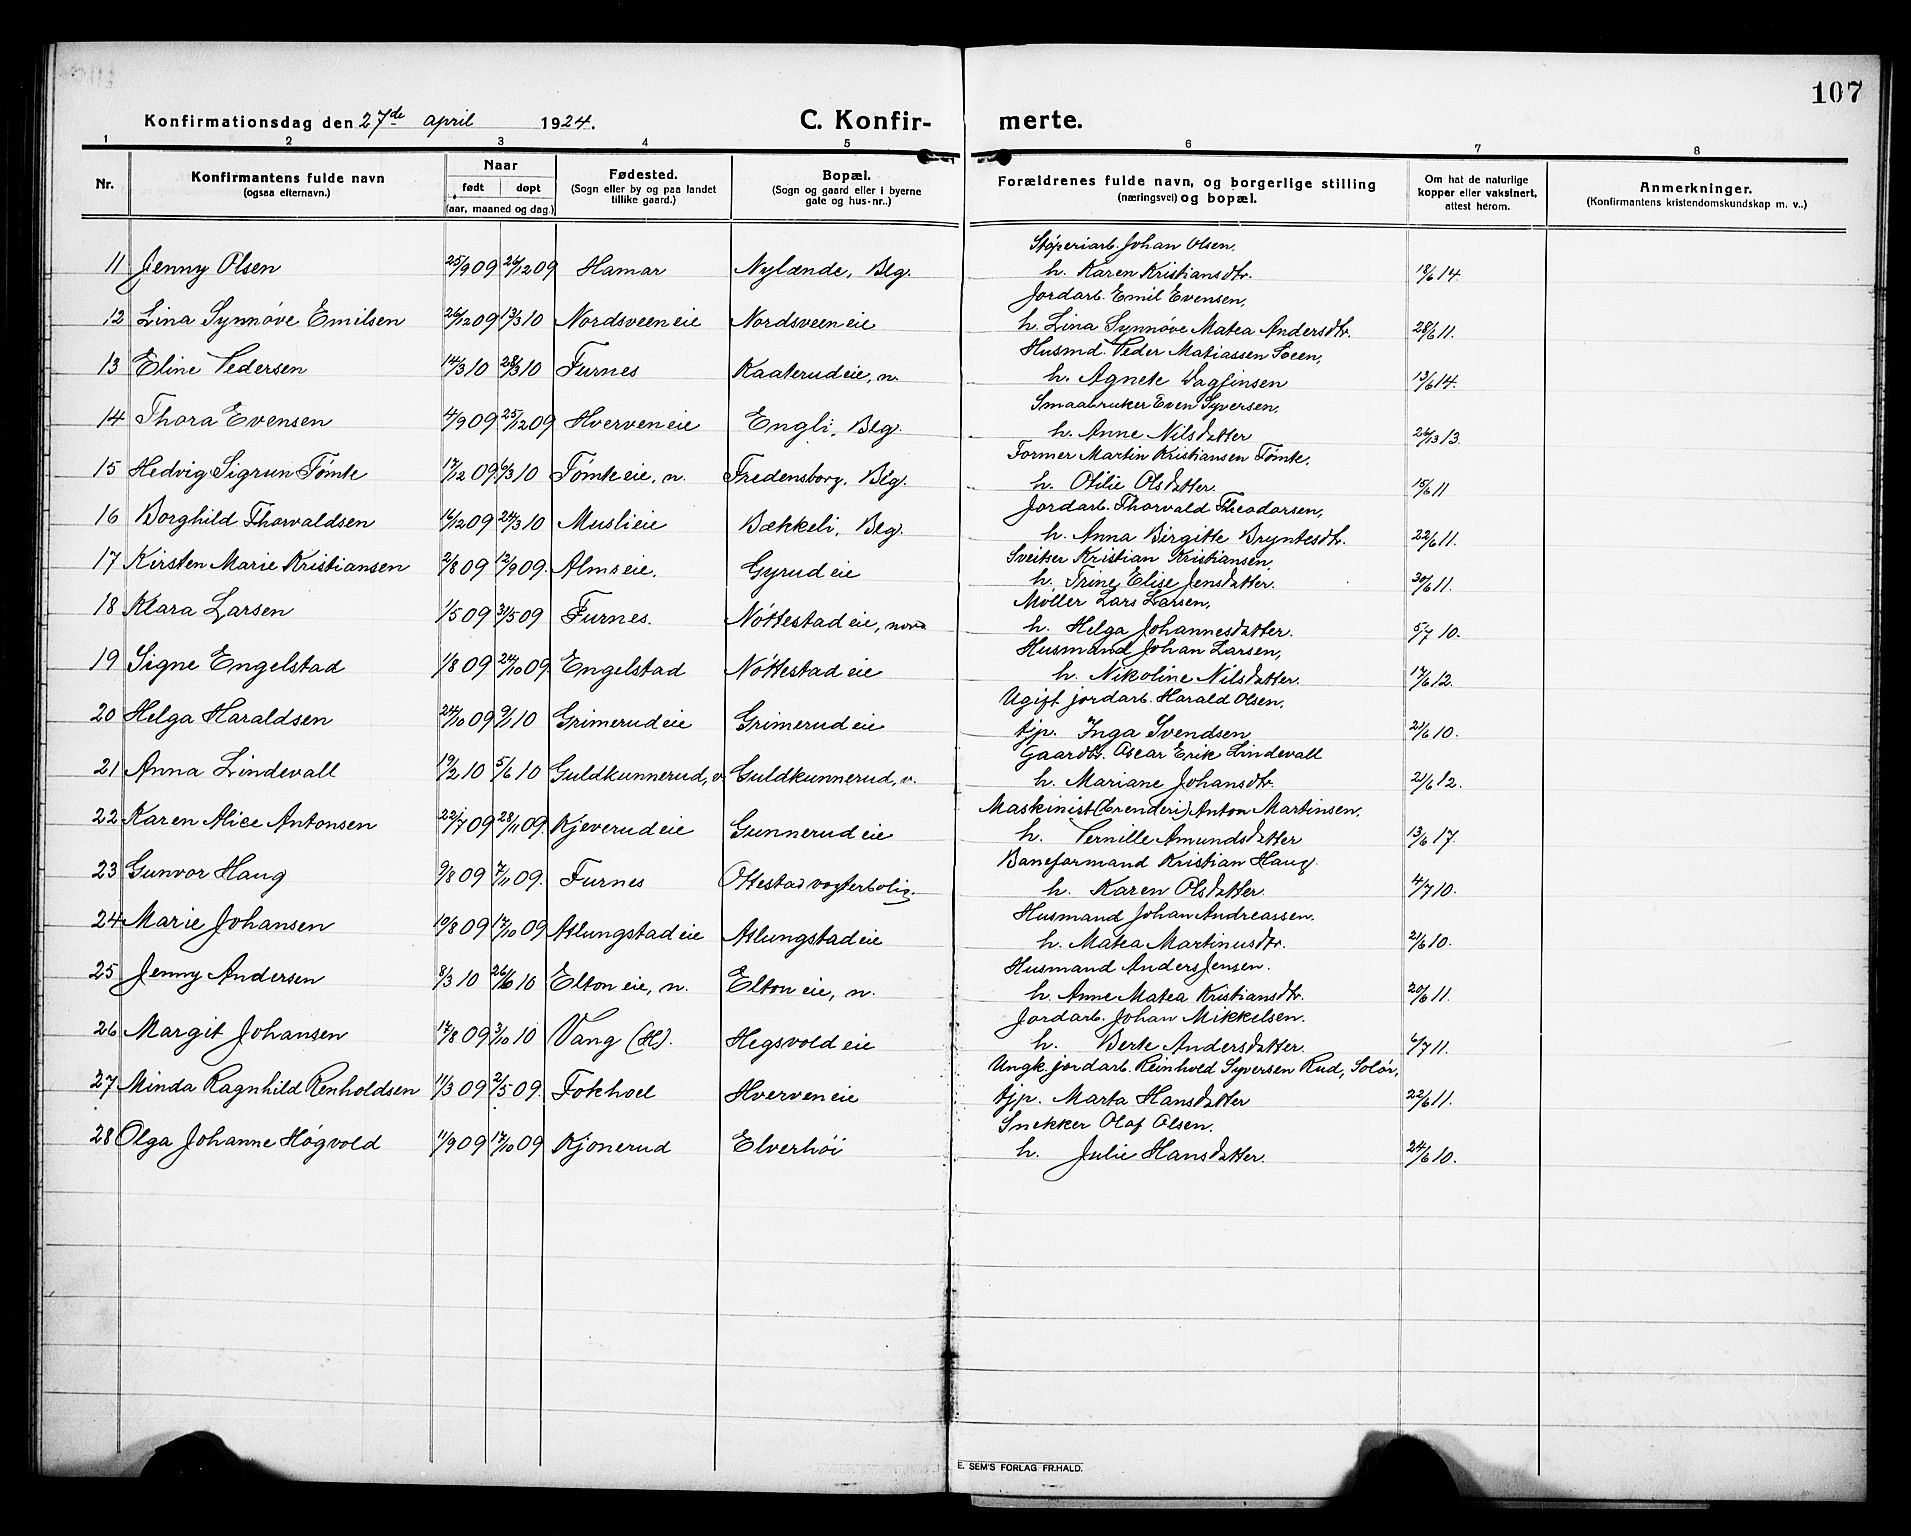 107
Konfirmationsdag den 27de april 1924. C. Konfirmerte.
1 2 3 4 5 6 7 8
Nr. Konfirmantens fulde navn (ogsaa efternavn.) Naar født døpt (aar, maaned og dag.) Fødested. (Sogn eller by og paa landet tillike gaard.) Bopæl. (Sogn og gaard eller i byerne gate og hus-nr..) Forældrenes fulde navn, og borgerlige stilling (næringsvei) og bopæl. Om hat de naturlige kopper eller vaksinert, attest herom. Anmerkninger. (Konfirmantens kristendomskundskap m. v..)
Støperiarb. Johan Olsen,
11 Jenny Olsen 25/9 09 26/12 09 Hamar Nylænde, Blg. h. Karen Kristiansdtr. 18/6 14.
Jordarb. Emil Evensen,
12 Lina Synnøve Emilsen 26/12 09 13/3 10 Nordsveen eie Nordsveen eie h. Lina Synnøve Matea Andersdtr. 28/6 11.
Husmd. Peder Matiassen Soeen,
13 Eline Pedersen 14/3 10 28/3 10 Furnes Kaaterud eie, n. h. Agnete Dagfinsen 13/6 14.
Smaabruker Even Syversen,
14 Thora Evensen 4/9 09 25/12 09 Hverven eie Engli, Blg. h. Anne Nilsdatter 26/13 13.
Former Martin Kristiansen Tømte,
15 Hedvig Sigrun Tømte 17/12 09 6/3 10 Tømte eie, n. Fredensborg, Blg. h. Otilie Olsdatter. 15/6 11
Jordarb. Thorvald Theodorsen,
16 Borghild Thorvaldsen 16/12 09 24/3 10 Musli eie Bækkeli, Blg. h. Anna Birgitte Bryntesdtr. 22/6 11.
Sveitser Kristian Kristiansen,
17 Kirsten Marie Kristiansen 2/8 09 12/9 09. Alms eie. Gyrud eie h. Trine Elise Jensdatter. 30/6 11.
Møller Lars Larsen,
18 Klara Larsen 1/5 09 31/5 09 Furnes. Nøttestad eie, nord h. Helga Johannesdatter. 5/7 10.
Husmand Johan Larsen,
19 Signe Engelstad 1/8 09 24/10 09 Engelstad Nøttestad eie h. Nikoline Nilsdatter. 17/6 12.
Ugift jordarb. Harald Olsen,
20 Helga Haraldsen 24/10 09 9/1 10 Grimerud eie Grimerud eie tjp. Inga Svendsen 21/6 10.
Gaardbr. Oscar Erik Lindevall
21 Anna Lindevall 19/2 10 5/6 10 Guldkunnerud, v. Guldkunnerud, v. h. Mariane Johansdtr. 21/6 12.
Maskinist (brenderi) Anton Martinsen,
22 Karen Alice Antonsen 22/7 09 28/11 09. Kjeverud eie Gunnerud eie h. Pernille Amundsdatter 13/6 17.
Baneformand Kristian Haug.
23 Gunvor Haug 9/8 09 7/11 09. Furnes Ottestad vogterbolig. h. Karen Olsdatter. 4/7 10.
Husmand Johan Andreassen.
24 Marie Johansen 19/8 09 17/10 09 Aslungstad eie Aslungstad eie h. Matea Martinusdtr. 21/6 10.
Husmand Anders Jensen.
25 Jenny Andersen 8/3 10 26/6 10 Elton eie, n. Elton eie, n. h. Anne Matea Kristiansdtr. 20/6 11.
Jordarb. Johan Mikkelsen.
26 Margit Johansen 17/8 09 3/10 10 Vang (H). Hegsvold eie h. Berte Andersdatter. 6/7 11.
Ungk. jordarb. Reinhold Syversen Rud, Solør,
27 Minda Ragnhild Renholdsen 11/3 09 2/5 09. Fokhoel Hverven eie tjp. Marta Hansdatter 22/6 11.
Snekker Olaf Olsen.
28 Olga Johanne Høgvold 11/9 09 17/10 09 Kjonerud Elverhöi h. Julie Hansdatter. 24/6 10.
E. SEM'S FORLAG FR.HALD.